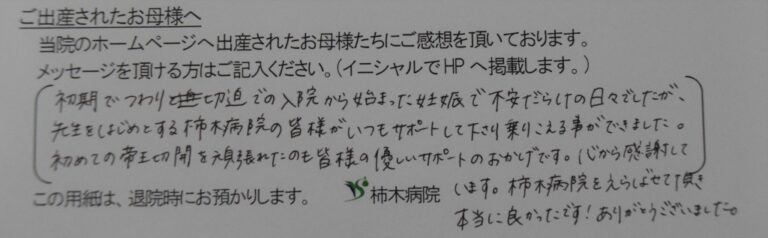 ご出産されたお母様へ
当院のホームページへ出産されたお母様たちにご感想を頂いております。
メッセージを頂ける方はご記入ください。(イニシャルでHPへ掲載します。)
初期でつわりと切迫での入院から始まった妊娠で不安だらけの日々でしたが、
先生をはじめとする柿木病院の皆様がいつもサポートして下さり乗りこえる事ができました。
初めての帝王切開を頑張れたのも皆様の優しいサポートのおかげです。心から感謝して
この用紙は、退院時にお預かりします。 柿木病院 います。柿木病院をえらばせて頂き
本当に良かったです!ありがとうございました。